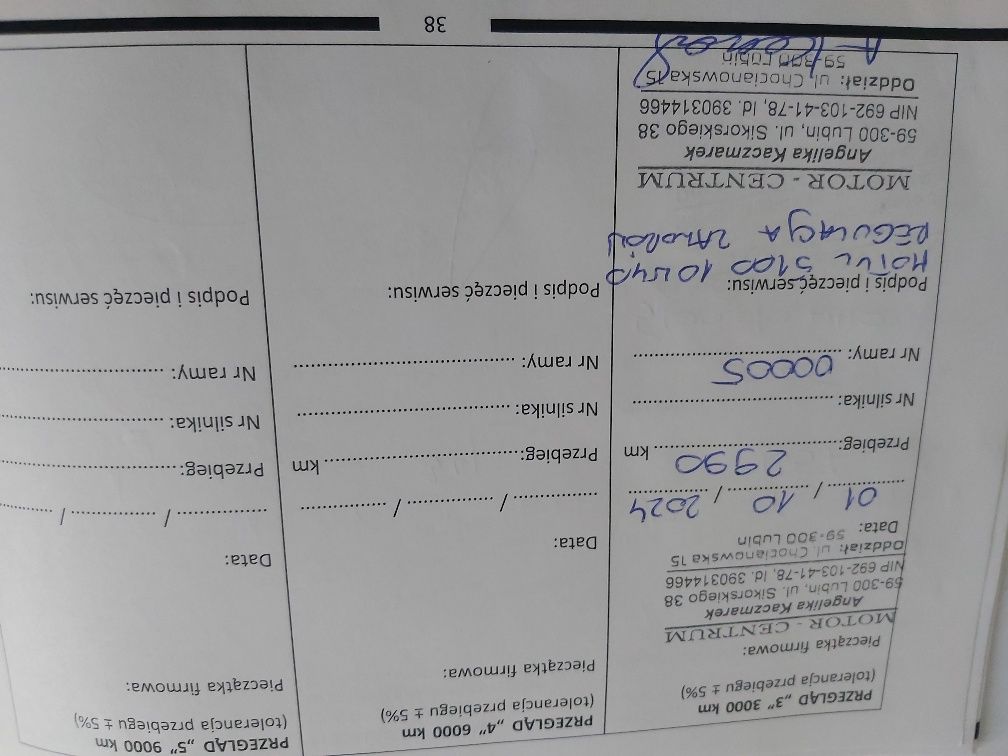 PRZEGLĄD „3” 3000 km
(tolerancja przebiegu ± 5%)
Pieczątka firmowa:
MOTOR - CENTRUM
Angelika Kaczmarek
59-300 Lubin, ul. Sikorskiego 38
NIP 692-103-41-78, Id. 390314466
Oddział: ul. Chocianowska 15
59-300 Lubin
Data:
01 / 10 / 2024
2990
Przebieg:.................................... km
Nr silnika: ....................................
00005
Nr ramy: ....................................
Podpis i pieczęć serwisu:
MOTUL 5100 10W40
REGULACJA
MOTOR - CENTRUM
Angelika Kaczmarek
59-300 Lubin, ul. Sikorskiego 38
NIP 692-103-41-78, Id. 390314466
Oddział: ul. Chocianowska 15
59-300 Lubin
PRZEGLĄD „4” 6000 km
(tolerancja przebiegu ± 5%)
Pieczątka firmowa:
Data:
................ / ................ / ................
Przebieg:.................................... km
Nr silnika: ....................................
Nr ramy: ....................................
Podpis i pieczęć serwisu:
PRZEGLĄD „5” 9000 km
(tolerancja przebiegu ± 5%)
Pieczątka firmowa:
Data:
................ / ................ / ................
Przebieg:....................................
Nr silnika: ....................................
Nr ramy: ....................................
Podpis i pieczęć serwisu:
38